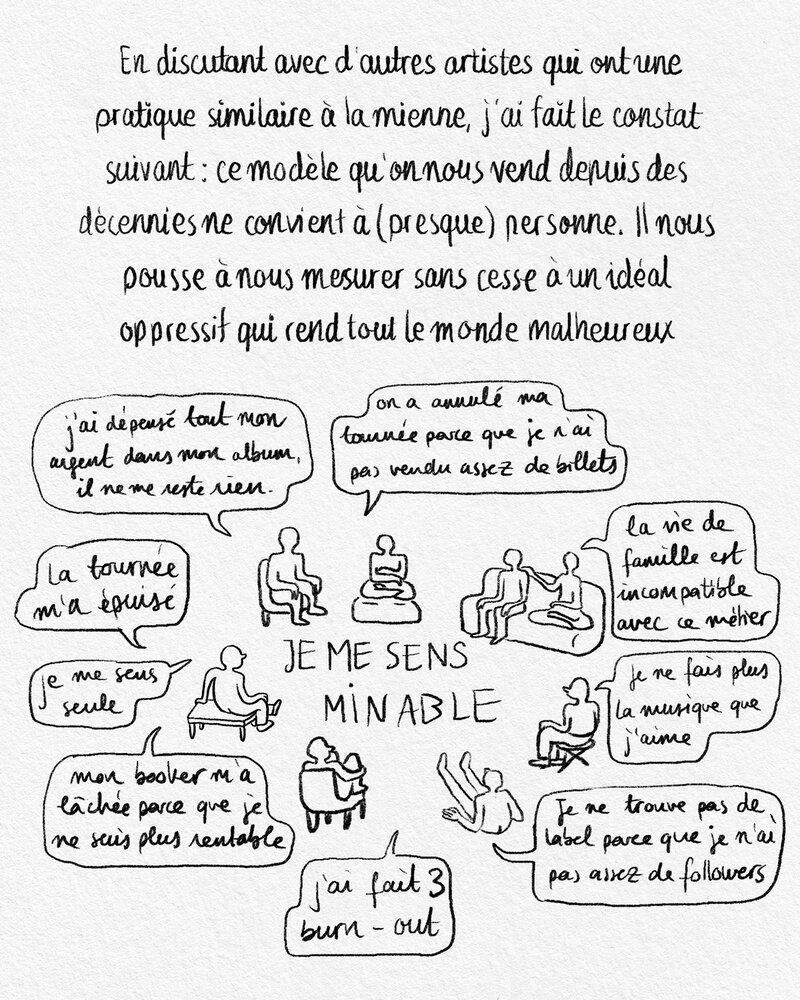 En discutant avec d'autres artistes qui ont une
pratique similaire à la mienne, j'ai fait le constat
suivant : ce modèle qu'on nous vend depuis des
décennies ne convient à (presque) personne. Il nous
pousse à nous mesurer sans cesse à un idéal
oppressif qui rend tout le monde malheureux
j'ai dépensé tout mon
argent dans mon album,
il ne me reste rien.
on a annulé ma
tournée parce que je n'ai
pas vendu assez de billets
la tournée
m'a épuisé
la vie de
famille est
incompatible
avec ce métier
JE ME SENS
MINABLE
je me sens
seule
je ne fais plus
la musique que
j'aime
mon booker m'a
lâchée parce que je
ne suis plus rentable
Je ne trouve pas de
label parce que je n'ai
pas assez de followers
j'ai fait 3
burn-out